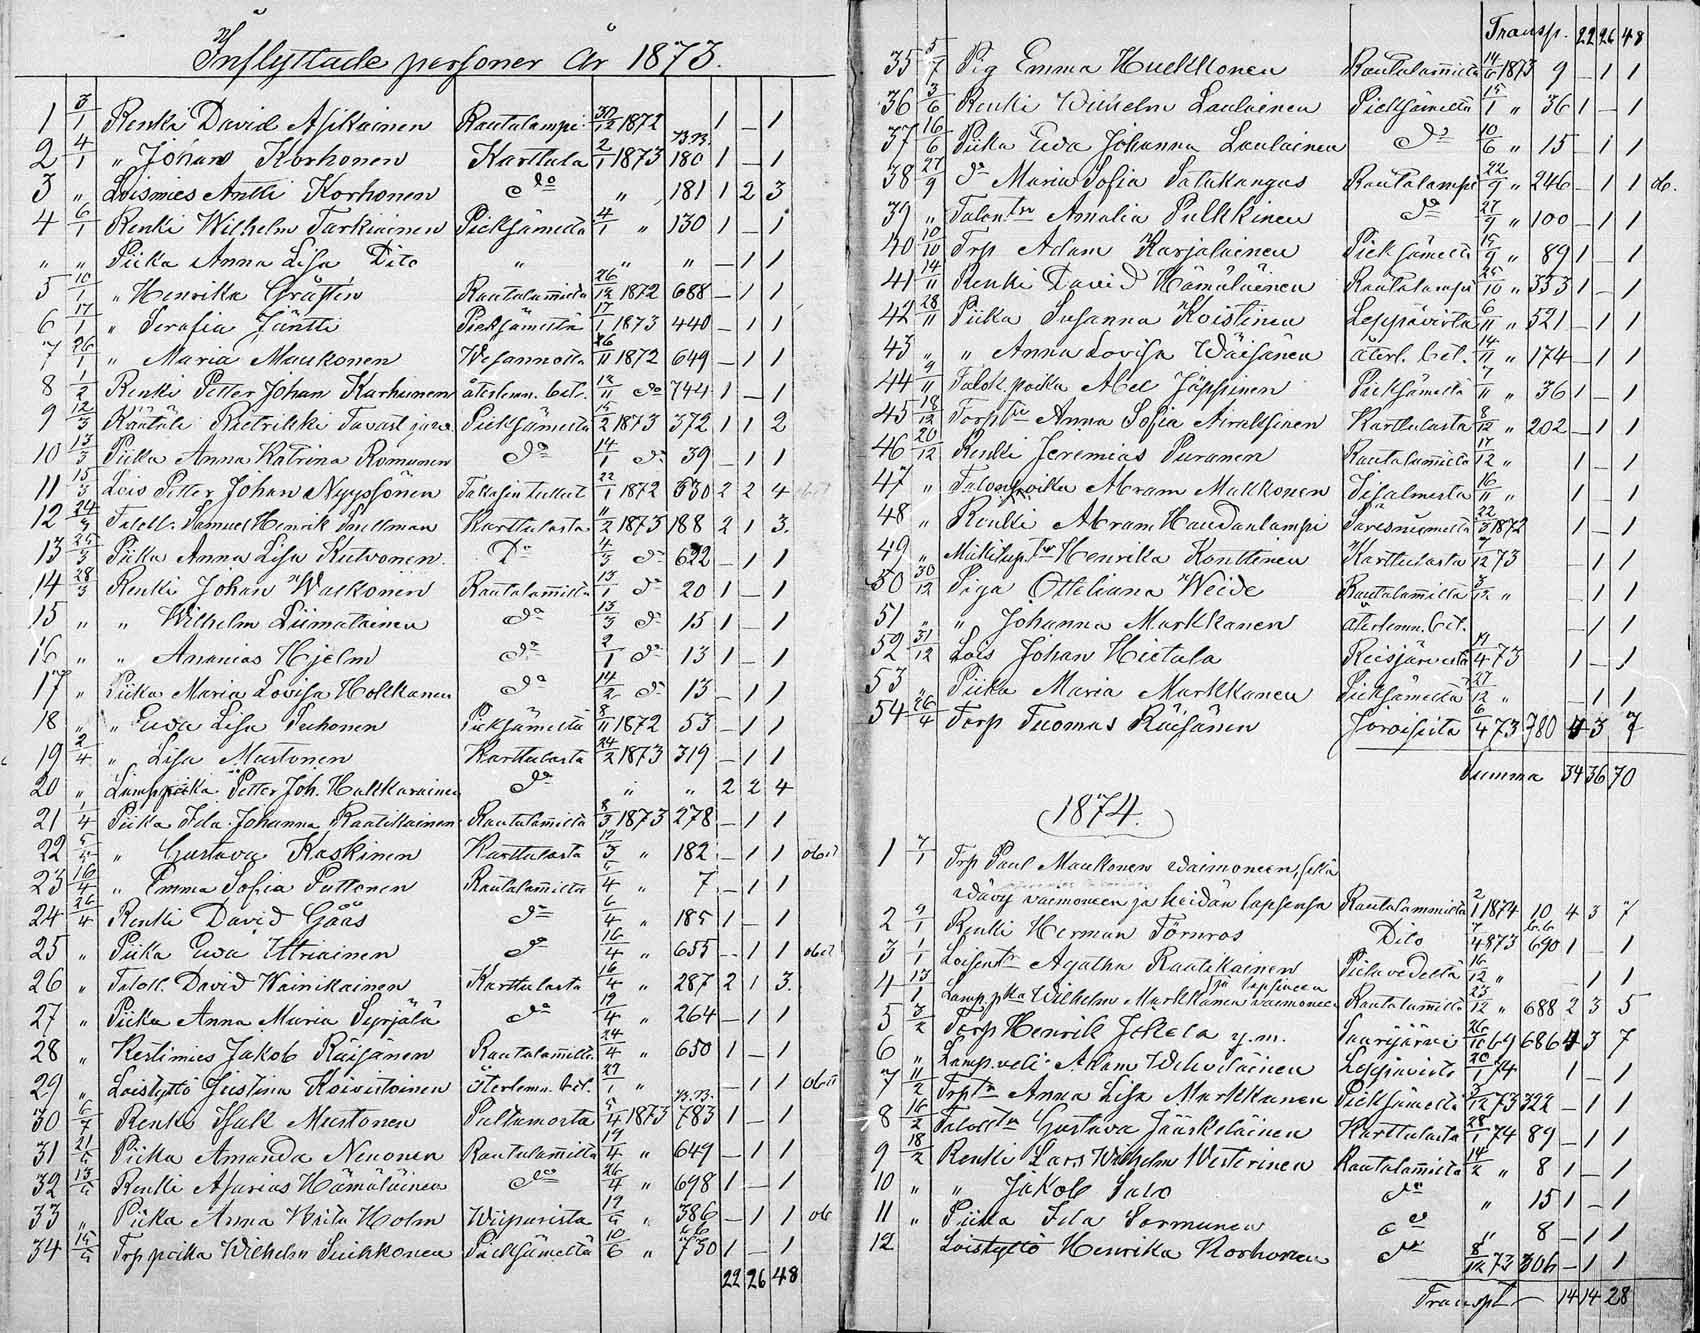 Inflyttade personer År 1873.
1 3/1 Renki David Asikainen Rautalampi 30/12 1872 1 – 1
2 4/1 " Johan Korhonen Karttula 2/1 1873 180 1 – 1
3 " Loismies Antti Korhonen do " 181 1 2 3
4 6/1 Renki Wilhelm Tarkiainen Pieksämeltä 4/1 " 130 1 – 1
" " Piika Anna Lisa Dito " " " – 1 1
5 10/1 " Henrika Gråsten Rautalammilta 26/12 1872 688 – 1 1
6 17/1 " Serafia Jäntti Pieksämeltä 17/1 1873 440 – 1 1
7 26/1 " Maria Maukonen Wesannolta 26/11 1872 649 – 1 1
8 1/2 Renki Petter Johan Karhunen återlemn. bet. 12/11 do 744 1 – 1
9 12/3 Räätäli Pietrikki Tavastjerna Pieksämeltä 15/2 1873 372 1 1 2
10 13/3 Piika Anna Katrina Romunen do 14/1 do 39 – 1 1
11 15/3 Lois Petter Johan Nyyssönen 22/1 1872 530 2 2 4
12 24/3 Taloll. Samuel Henrik Snellman Karttulasta 11/2 1873 188 2 1 3
13 25/3 Piika Anna Lisa Kutvonen Do 4/3 do 622 – 1 1
14 28/3 Renki Johan Walkonen Rautalammilta 13/1 do 20 1 – 1
15 " " Wilhelm Liimatainen do 13/3 do 15 1 – 1
16 " " Ananias Hjelm do 2/1 do 13 1 – 1
17 " Piika Maria Lovisa Holkkanen do 14/2 do 13 – 1 1
18 " " Ewa Lisa Puhonen Pieksämeltä 8/11 1872 53 – 1 1
19 2/4 " Lisa Mustonen Karttulasta 24/2 1873 319 – 1 1
20 " Lamp.poika Petter Joh. Hallkarainen do " " 2 2 4
21 1/4 Piika Ida Johanna Rautikainen Rautalammilta 8/3 1873 278 – 1 1
22 5/4 " Gustava Kaskinen Karttulasta 12/3 " 182 – 1 1
23 16/4 " Emma Sofia Puttonen Rautalammilta 5/4 " 7 – 1 1
24 26/4 Renki David Gåås do 6/4 " 185 1 – 1
25 " Piika Ewa Uttriainen do 16/4 " 655 – 1 1
26 " Taloll. David Wainikainen Karttulasta 16/4 " 287 2 1 3
27 " Piika Anna Maria Syrjälä do 19/4 " 264 – 1 1
28 " Kestimies Jakob Räisänen Rautalammilta 24/4 " 650 1 – 1
29 " Loistyttö Justina Koivistoinen återlemn. bet. 27/1 " – 1 1
30 6/7 Renki Isak Mustonen Paltamosta 5/4 1873 783 1 – 1
31 21/4 Piika Amanda Nenonen Rautalammilta 19/4 " 649 – 1 1
32 13/5 Renki Asarias Hämäläinen do 26/4 " 698 1 – 1
33 " Piika Anna Brita Holm Wiipurista 19/5 " 386 – 1 1 ob
34 14/5 Trp poika Wilhelm Suihkonen Pieksämeltä 10/6 " 730 1 – 1
22 26 48
Transp. 22 26 48
35 5/7 Pig Emma Hukkonen Rautalammilta 14/6 1873 9 – 1 1
36 3/6 Renki Wilhelm Laulainen Pieksämeltä 15/1 " 36 1 – 1
37 16/6 Piika Ewa Johanna Laulainen do 10/6 " 15 – 1 1
38 27/9 do Maria Sofia Satukangas Rautalampi 22/9 " 246 – 1 1 ob.
39 " Talontr Amalia Pulkkinen do 27/9 " 100 – 1 1
40 10/10 Trp Adam Karjalainen Pieksämeltä 19/9 " 89 1 – 1
41 14/11 Renki David Hämäläinen Rautalampi 25/10 " 333 1 – 1
42 28/11 Piika Susanna Koistinen Leppävirta 6/11 " 521 – 1 1
43 " " Anna Lovisa Wäisänen återl. bet. 14/11 " 174 – 1 1
44 9/11 Talok. poika Abel Jäppinen Pieksämeltä 7/11 " 36 1 – 1
45 18/12 Torp Anna Sofia Airaksinen Karttulasta 8/12 " 202 – 1 1
46 20/12 Renki Jeremias Puranen Rautalammilta 17/12 " 1 – 1
47 " Talonpoika Abram Makkonen Iisalmesta 16/11 " 1 – 1
48 " Renki Abram Haudanlampi 22/3 1872 1 – 1
49 " Mäkitup. Tr Henrika Konttinen Karttulasta 7/12 73 – 1 1
50 30/12 Piga Otteliana Weide Rautalammilta 3/12 " – 1 1
51 " " Johanna Markkanen återlemn. bet. – 1 1
52 31/12 Lois Johan Hietala Reisjärveltä 19/4 73 1 – 1
53 " Piika Maria Markkanen Pieksämeltä 27/12 " – 1 1
54 26/4 Torp Tuomas Räisänen Joroisista 6/4 73 780 4 3 7
Summa 34 36 70
1874.
1 7/1 Trp Paul Maukonen waimoneen, sekä
wävy waimoneen ja heidän lapsensa Rautalammilta 2/1 1874 10 4 3 7
2 9/1 Renki Herman Törnros Dito 7/4 873 690 1 – 1
3 1/1 Loisentr Agatha Rautikainen Pielavedeltä 16/12 " – 1 1
ja lapsineen
4 13/1 Lamp.pka Wilhelm Markkanen waimoneen Rautalammilta 23/12 " 688 2 3 5
5 3/2 Torp Henrik Jokela y.m. Saarijärvi 26/10 69 686 4 3 7
6 " Lamp.veli Adam Wehviläinen Leppävirta 20/1 74 1 – 1
7 11/2 Trptr Anna Lisa Markkanen Pieksämeltä 3/12 73 322 – 1 1
8 16/2 Taloltr Gustava Jääskeläinen Karttulasta 28/1 74 89 – 1 1
9 18/2 Renki Lars Wilhelm Westerinen Rautalammilta 14/2 " 8 1 – 1
10 " " Jakob Salo do " 15 1 – 1
11 " Piika Ida Sormunen do " 8 – 1 1
12 Loistyttö Henrika Korhonen do 8/12 73 306 – 1 1
Transpt 14 14 28